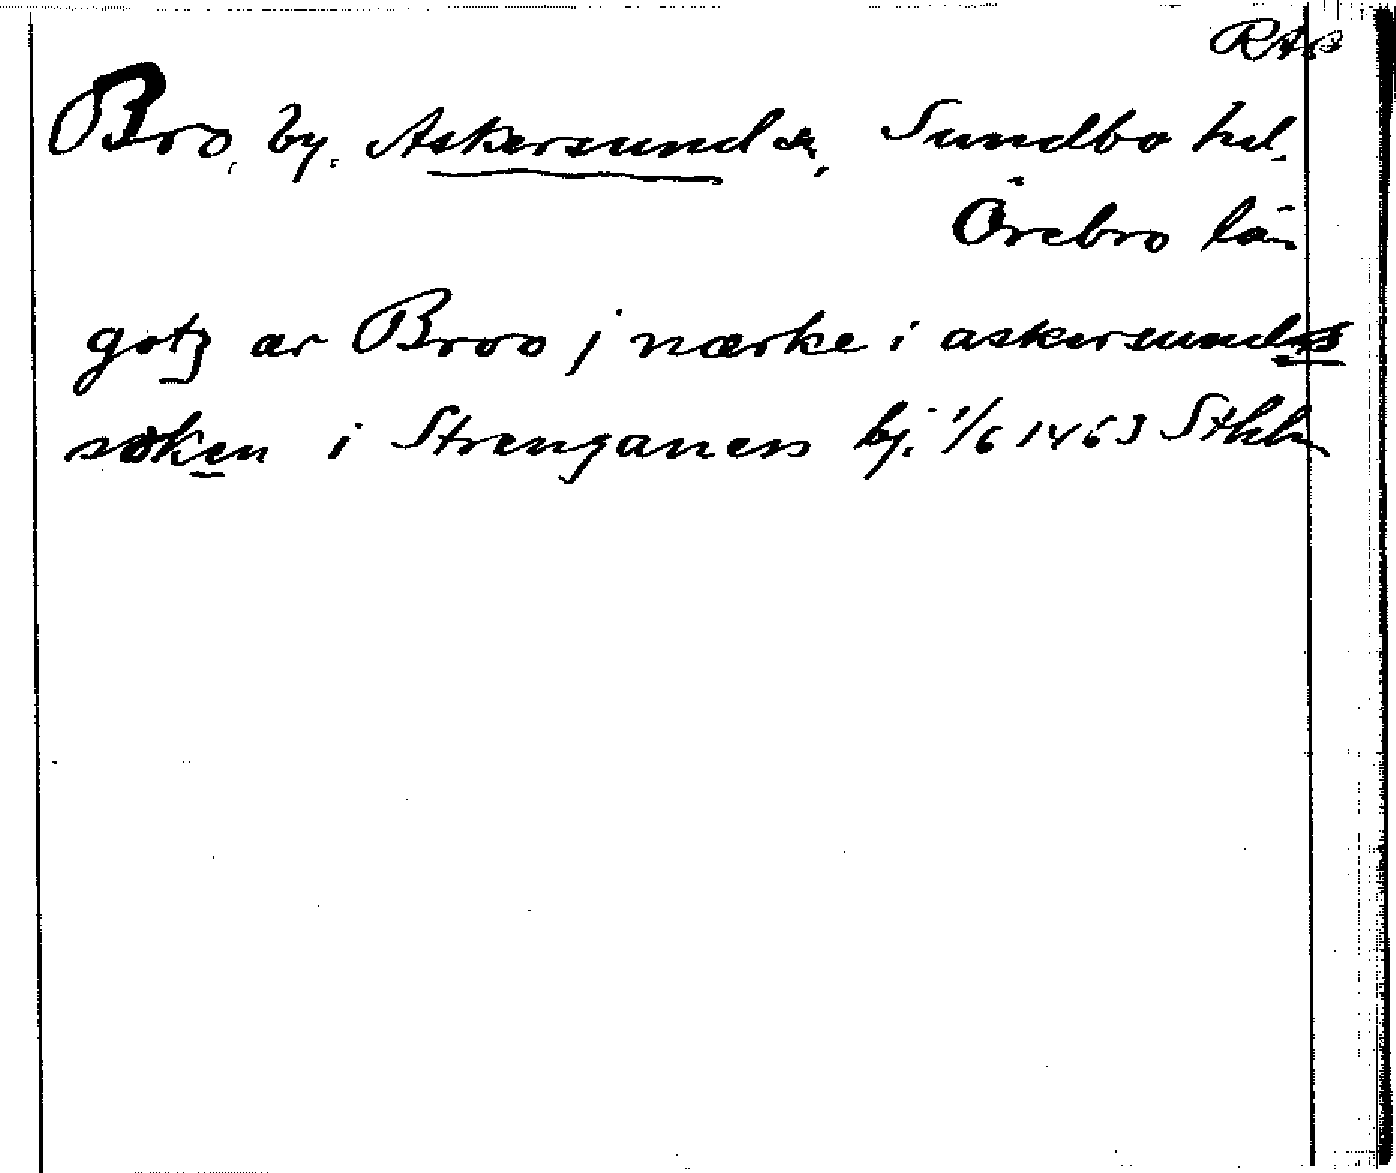 RAp
Bro, by. Askersund sn, Sundbo hd.
Örebro län
gotz ær Broo j nærke i askersunds
søken i Strengænæs bj. 1/6 1463 Sthlm